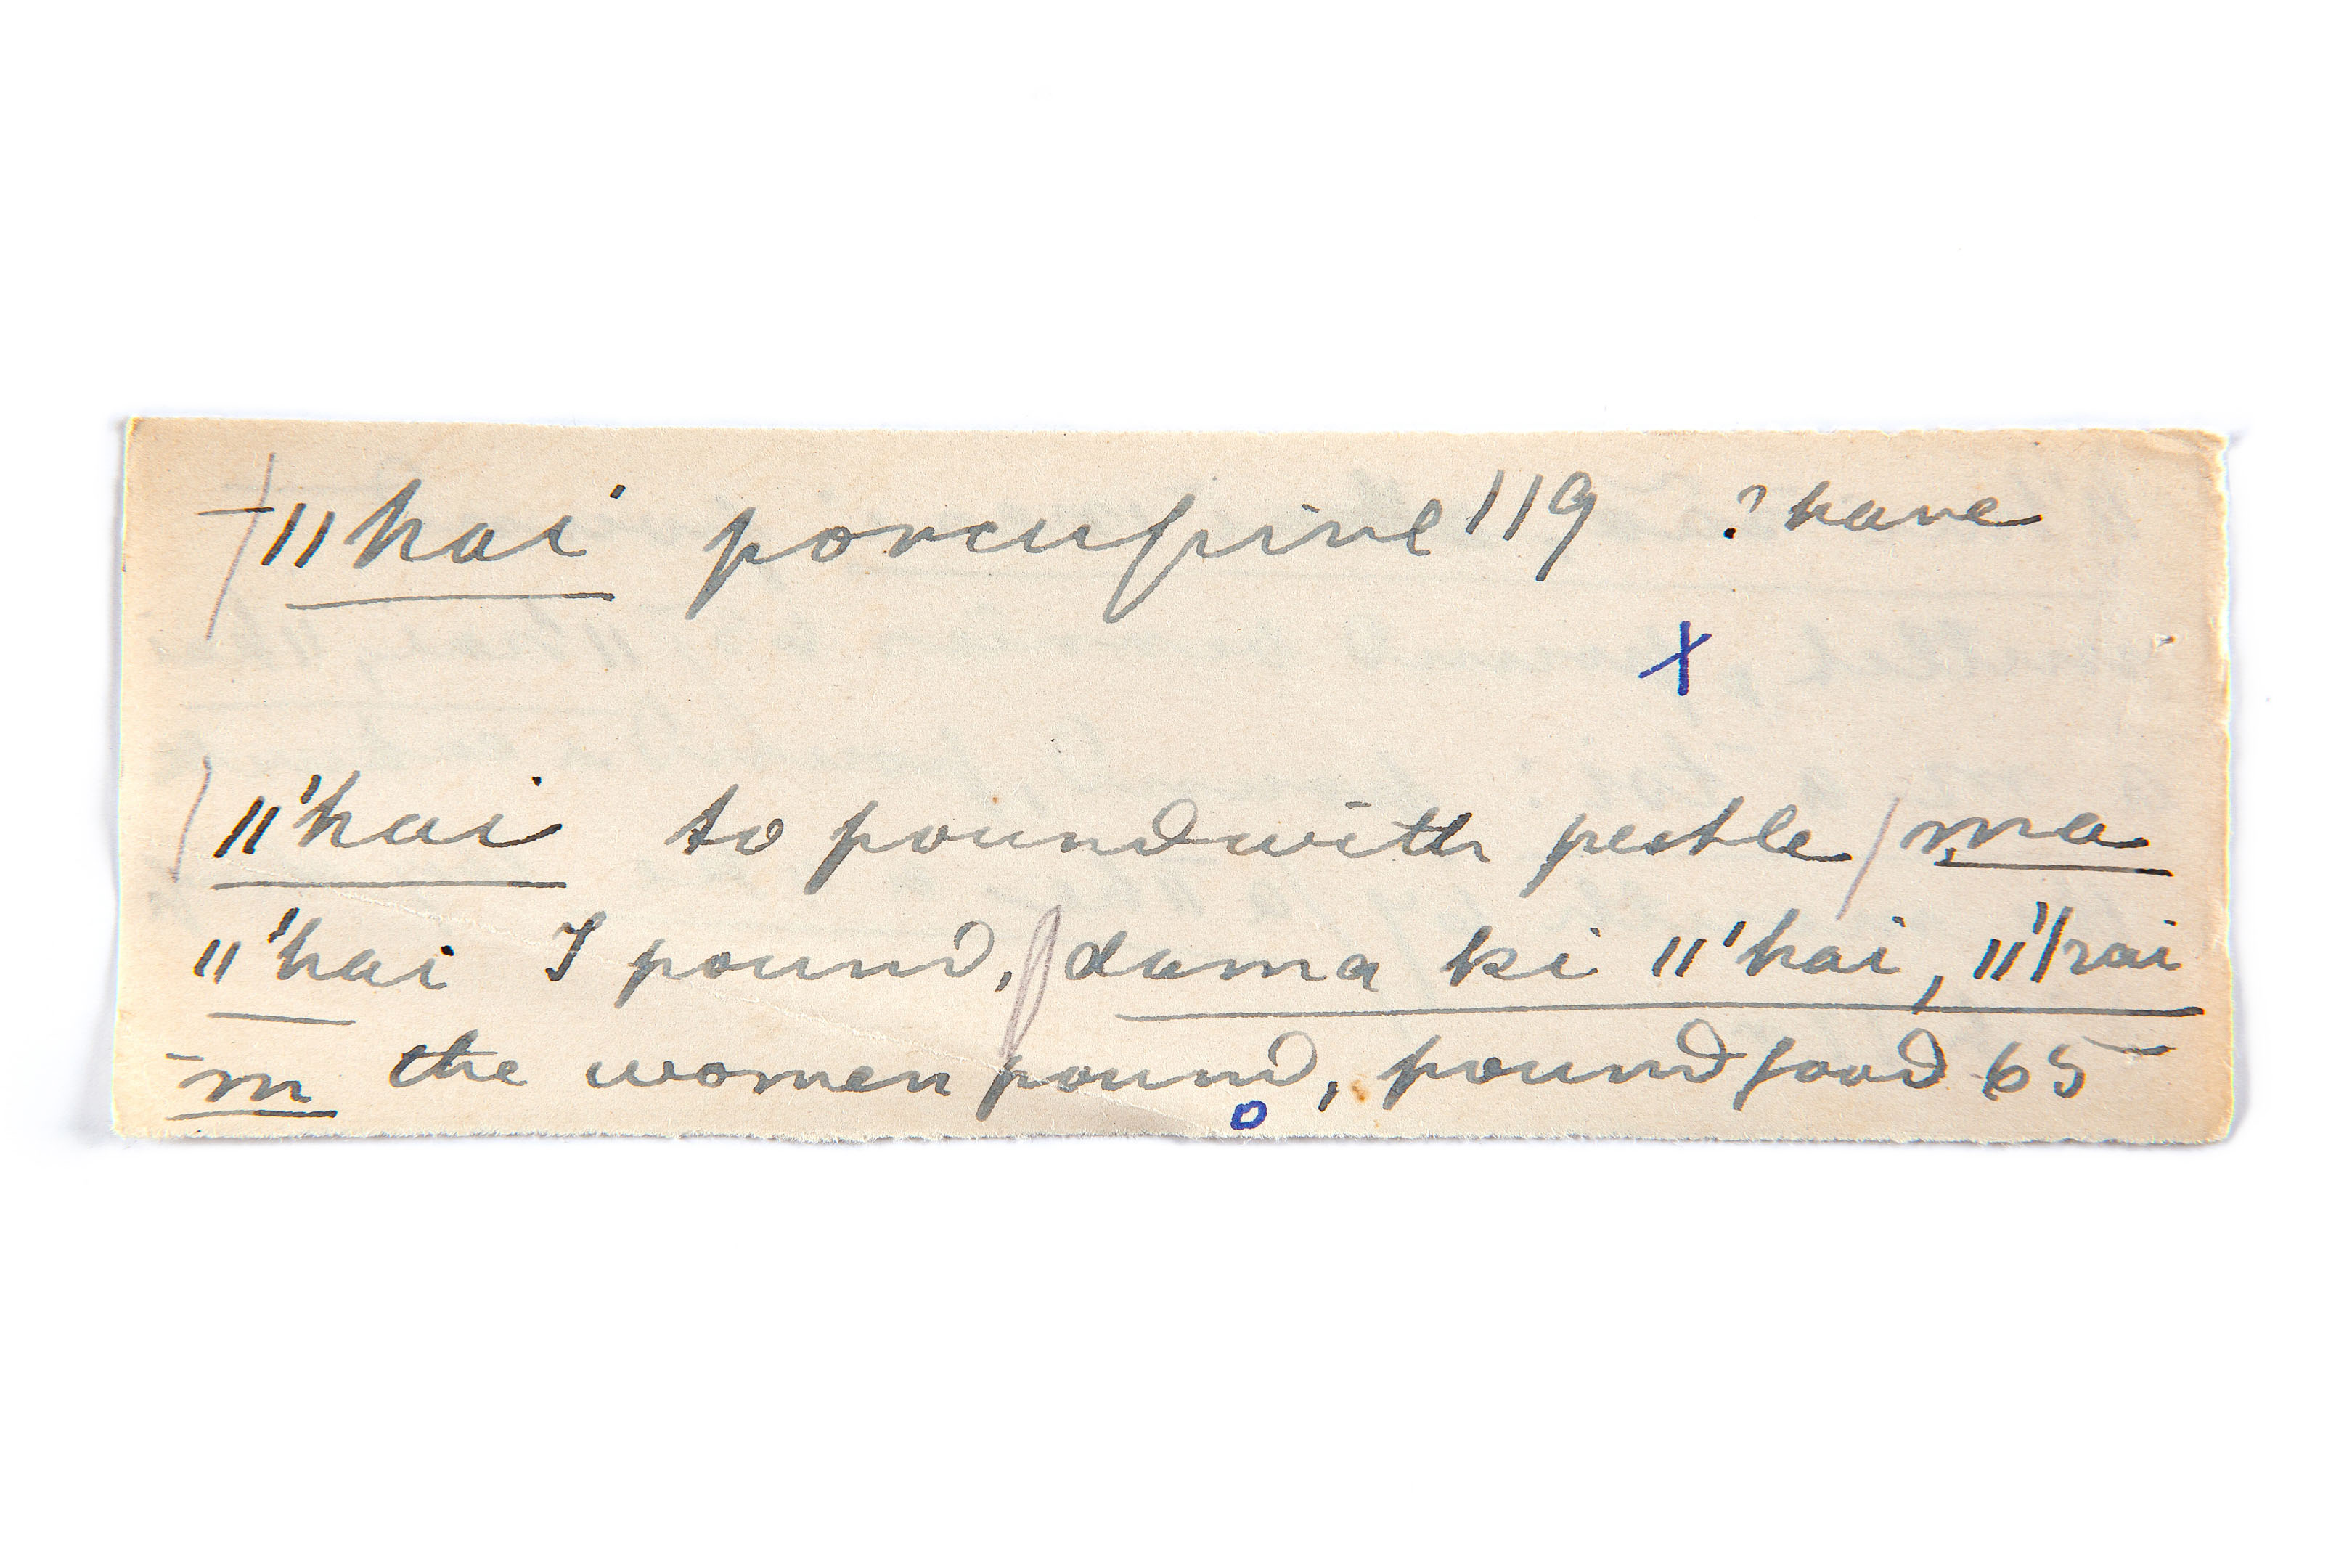 ǁhai porcupine 119 ? have
x
ǁ'hai to pound with pestle / ma
ǁ'hai I pound, / dama ki ǁ'hai, ǁ'hai
m the women pound, pound food 65
o